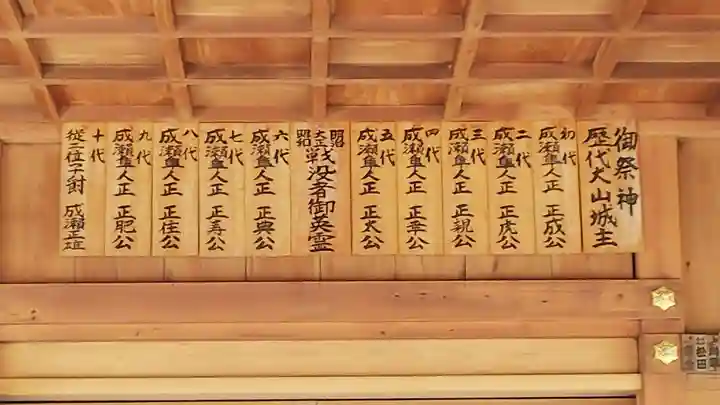 御祭神
歴代犬山城主
初代
成瀬隼人正 正成公
二代
成瀬隼人正 正虎公
三代
成瀬隼人正 正親公
四代
成瀬隼人正 正幸公
五代
成瀬隼人正 正太公
明治
大正
昭和
戦没者御英霊
六代
成瀬隼人正 正典公
七代
成瀬隼人正 正寿公
八代
成瀬隼人正 正住公
九代
成瀬隼人正 正肥公
十代
従三位子爵 成瀬正雄
松田